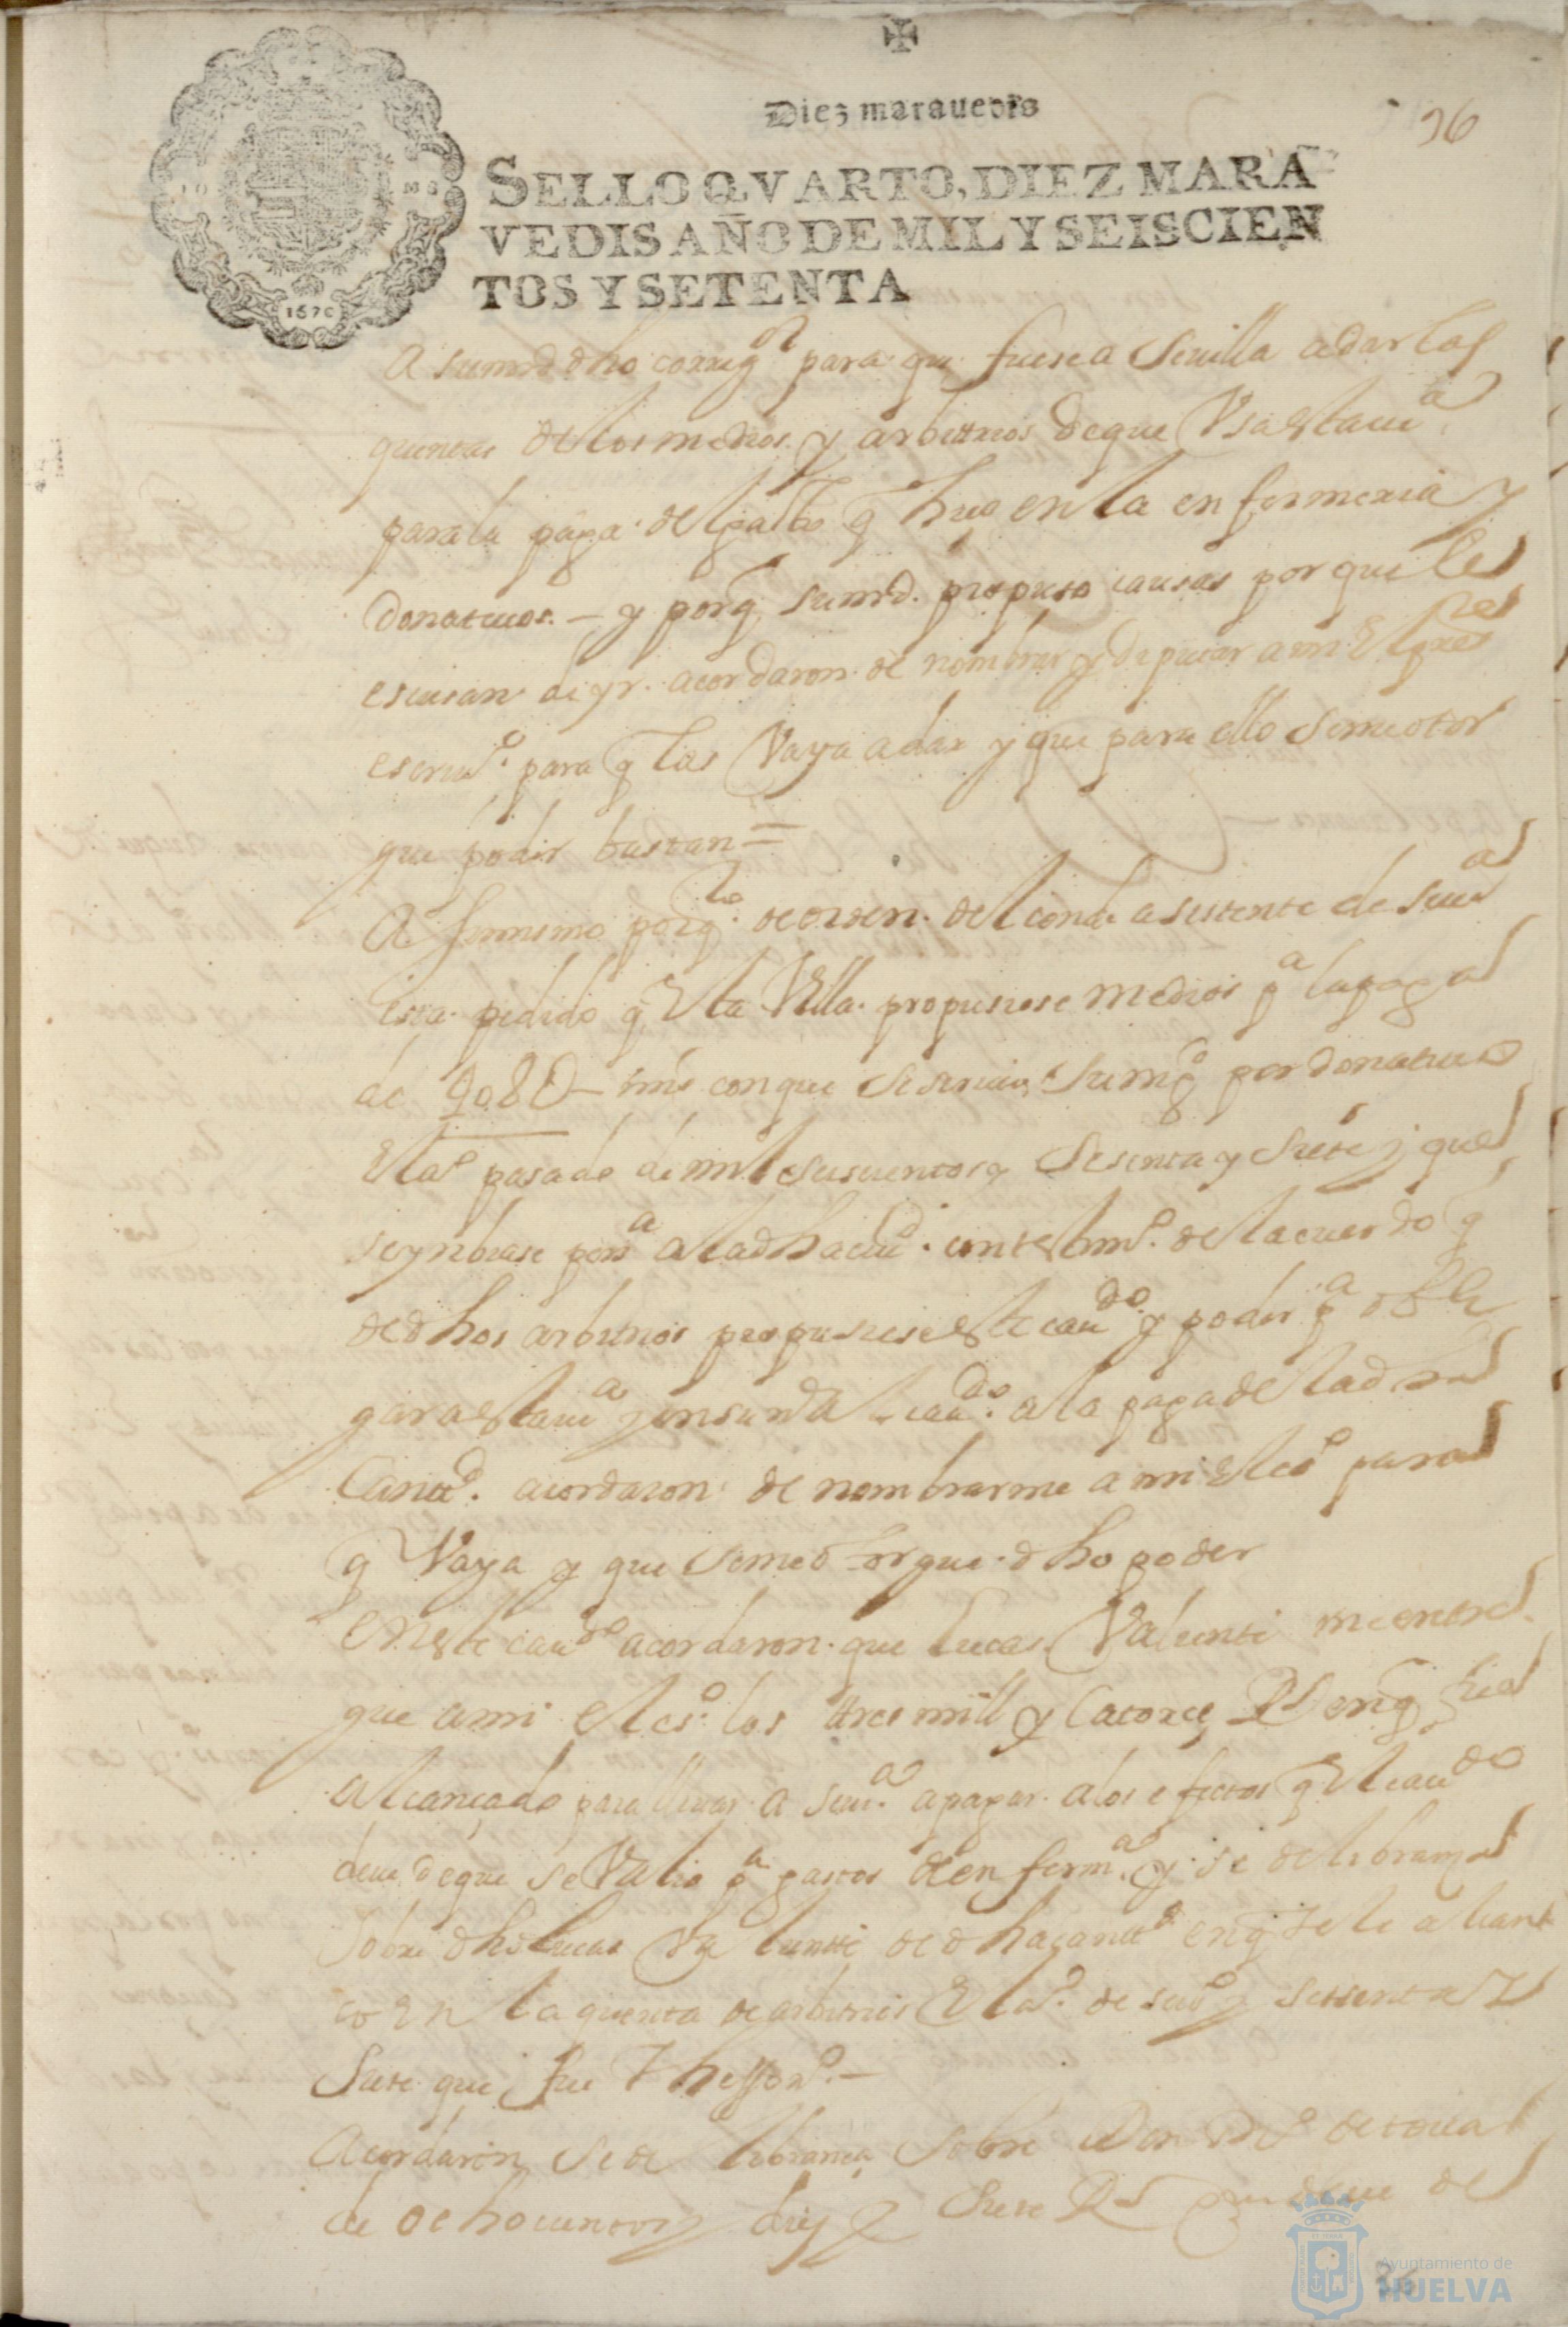 Diez marauedis
36
SELLO QVARTO, DIEZ MARA
VEDIS AÑO DE MIL Y SEISCIEN
TOS Y SETENTA
1670
A su md dho corregor para que fuese a Seuilla a dar las
quentas de los medios y arbittrios de que Usa esta uia
para la paga del gasto q hizo en la enfermeria y
donatiuos. — y porq su md. propuso causas por que se
escusan de yr. acordaron de nombrar y deputar a mi el preste
escriuo. para q las Vaya a dar y que para ello se me otor
gue poder bastante =
A simismo porq de orden del conde asistente de seuia
esta pedido q esta Villa propusiese medios pa la paga
de con que se siruio a su mgd por donatiuo
el año pasado de mil seiscientos y sesenta y siete y que
se ynbiase persa a la dha ciud. con testimo. del acuerdo q
de dhos arbitrios propusiese este caudo y poder pa obli
gar a esta uia y en su nre al caudo. a la paga de la dha
Cantd. acordaron de nombrarme a mi el eso para
q Vaya y que se me otorgue dho poder
En este caudo acordaron que lucas Valiente me entre
gue a mi el eso. los tres mill y Catorce Rs en q fue
alcançado para lleuar a seuia. a pagar a los efectos q el caudo
deue de que se Valio pa gastos de enferma. y se de librança
sobre dho lucas Valiente de dha cantd en q se le alcan
ço En la quenta de arbitrios del año. de seiso y sesenta y
siete que fue Thessoro. —
Acordaron se de librança sobre Don de toual
de ochocientos y diez y siete Rs que deue de
Ayuntamiento de
HUELVA